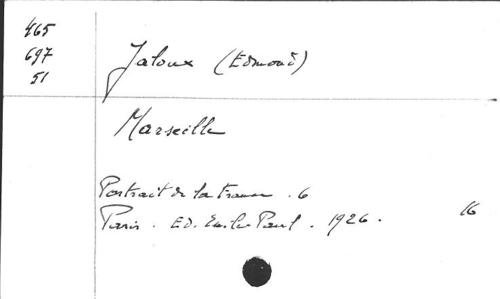 465
697
51
Jaloux (Edmond)
Marseille
Portrait de la France . 6
Paris . Ed. Emile Paul . 1926 .
16